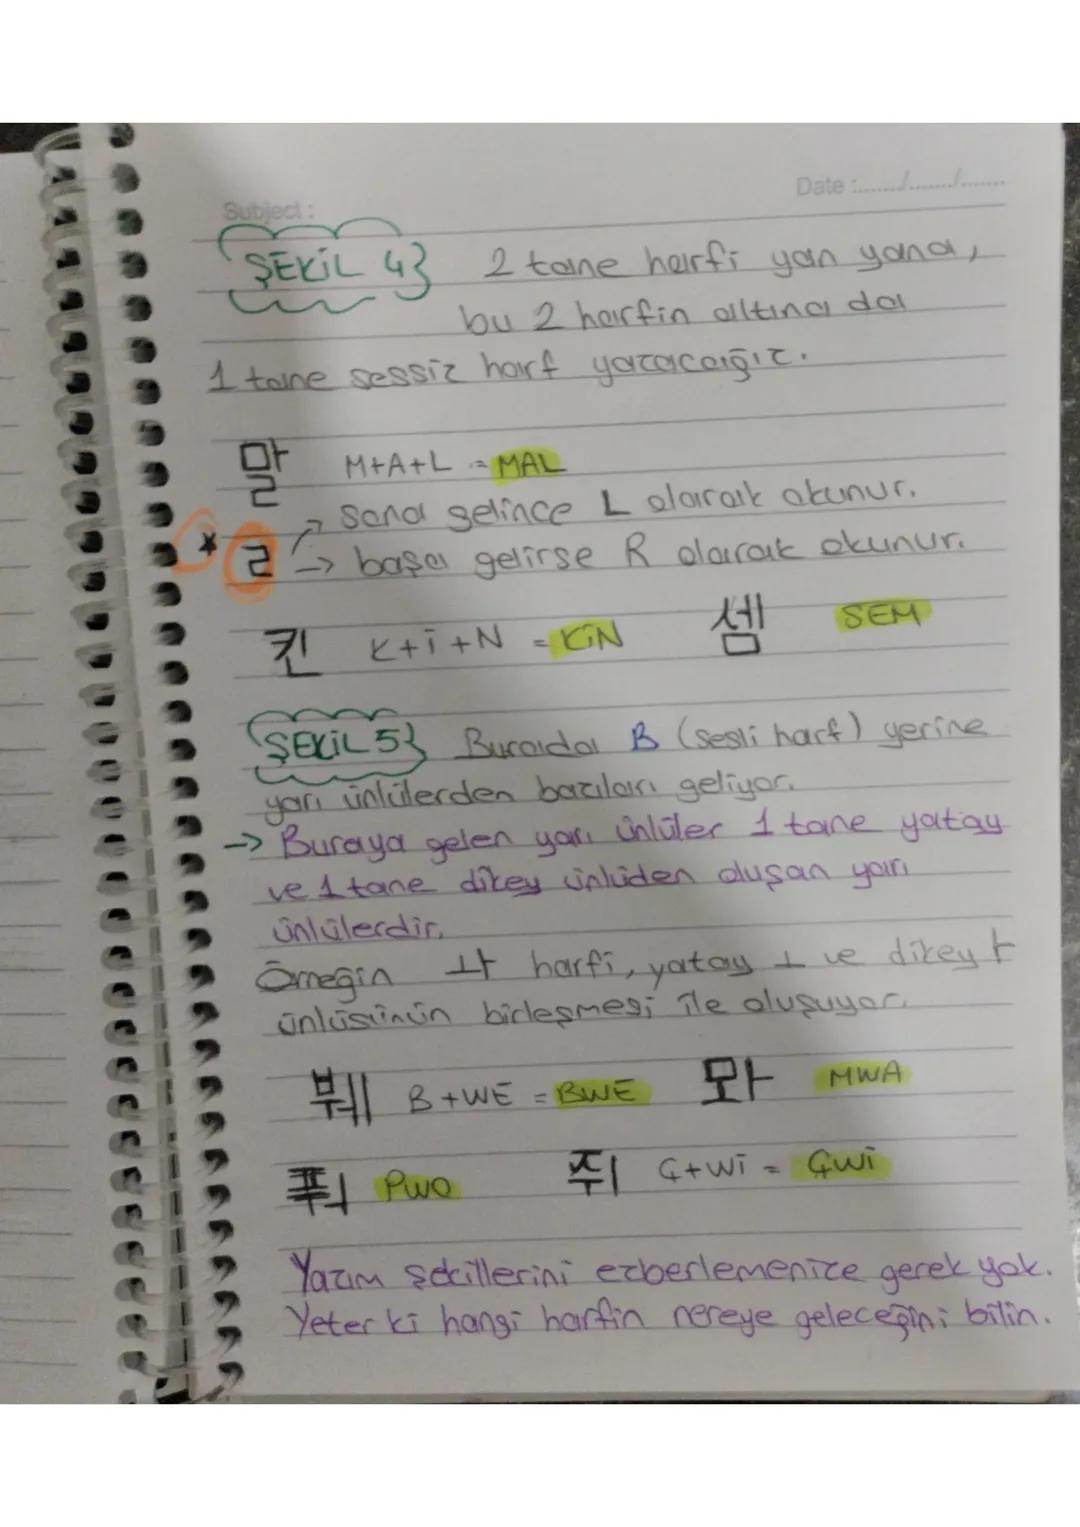 Subject:
Date :......./......./.......
ŞEKİL 4} 2 tane harfi yan yana,
bu 2 harfin altına da
1 tane sessiz harf yazacağız.
말 M+A+L = MAL
→ Sona gelince L olarak okunur.
* ㄹ → başa gelirse R olarak okunur.
킨 K+İ+N = KİN 셈 SEM
ŞEKİL 5} Burada B (sesli harf) yerine
yarı ünlülerden bazıları geliyor.
→ Buraya gelen yarı ünlüler 1 tane yatay
ve 1 tane dikey ünlüden oluşan yarı
ünlülerdir.
Örneğin ㅘ harfi, yatay ㅗ ve dikey ㅏ
ünlüsünün birleşmesi ile oluşuyor.
붸 B+WE = BWE 뫄 MWA
풔 PWO 쥐 Ç+Wİ = ÇWİ
Yazım şekillerini ezberlemenize gerek yok.
Yeter ki hangi harfin nereye geleceğini bilin.